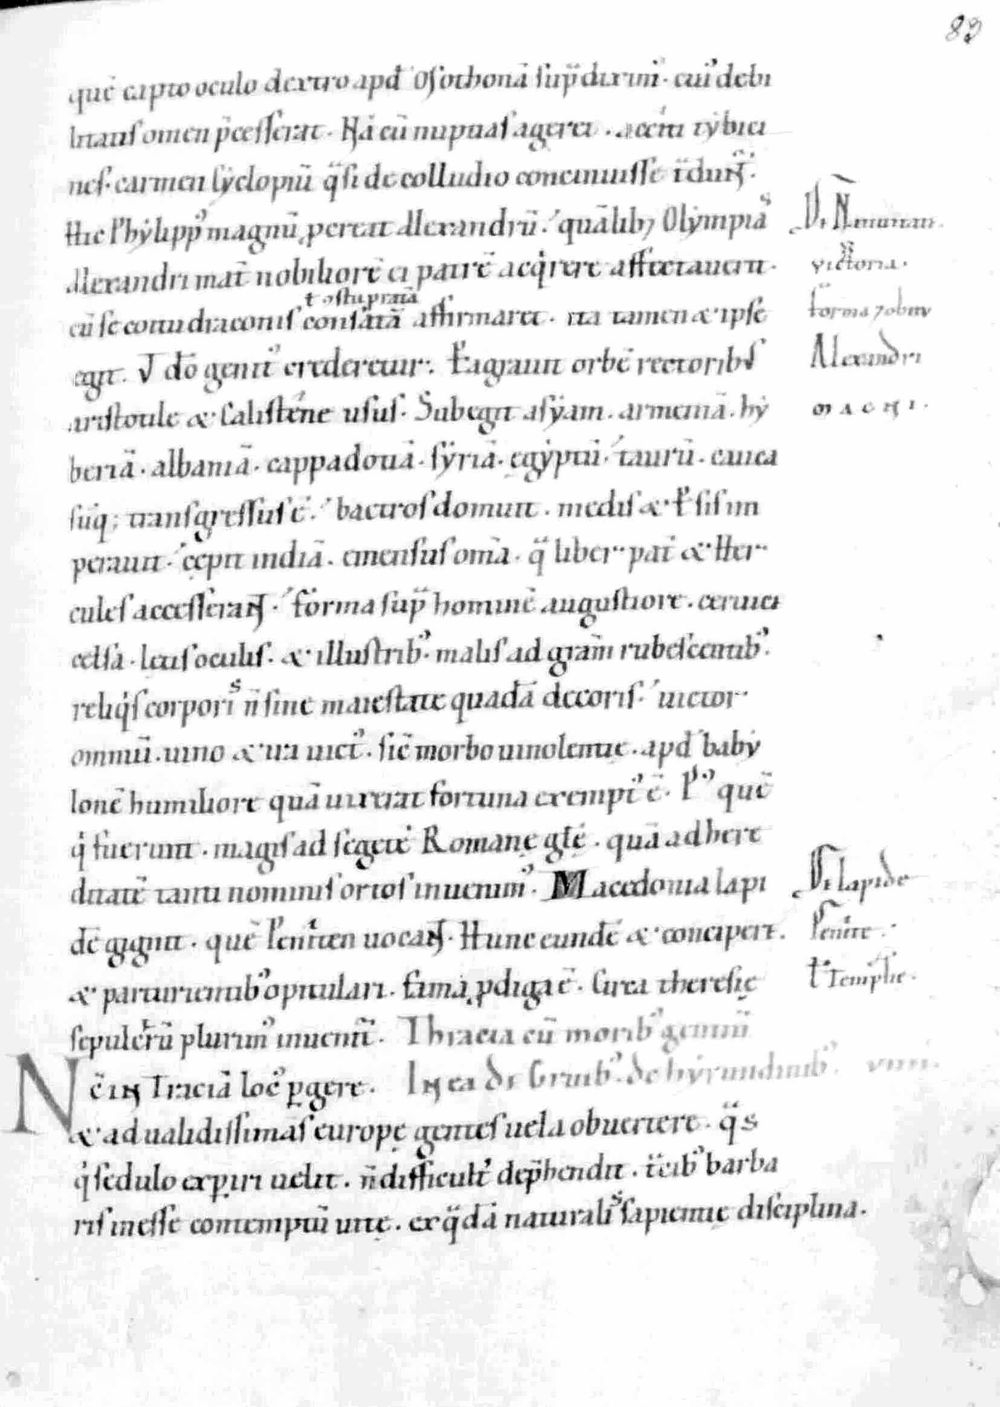 83
quē capto oculo dextro apd̄ Osothonā sup̄ diximꝰ. cuiꝰ debi
litatis omen p̄cesserat. Nā cū nuptias ageret. acciti tybici
nes. carmen syclopiū q̄si de colludio concinuisse t̄dunt̄.
Hic Phylippꝰ magnū perat Alexandrū. quālibꝫ Olympias
Alexandri mat̄ nobiliorē ei patrē acq̇rere affectauerit.
ł ꝯstupratā
cū se coitu draconis consatā affirmaret. ita tamen & ipse
egit. V dō genitꝰ crederetur. Pagrauit orbē rectoribus
aristotile & Calistene usus. Subegit asyam. armeniā. hy
beriā. albaniā. cappadotiā. syriā. egyptū. taurū. cauca
sūq; transgressus ē. bactros domuit. medis & ꝑsis im
perauit. cepit indiā. emensus om̄a. q̄ liber pat̄ & Her
cules accesserant̄. forma sup̄ hominē augustiore. ceruice
celsa. letis oculis. & illustribꝰ. malis ad gr̄am rubescentibꝰ.
reliq̇s corporis n̄ sine maiestate quadā decoris. uictor
omniū. uino & ira uictꝰ. sic̄ morbo uinolentie. apd̄ baby
lonē humiliore quā uixerat fortuna exemptꝰ ē. Pꝰ quē
q̇ fuerunt. magis ad segetē Romanę gl̄ę. quā ad here
ditatē tanti nominis ortos inuenimꝰ. Macedonia lapi
dē gignit. quē Penitten uocant̄. Hunc eundē & concipere.
& parturientibꝰ opitulari. fama ꝓdiga ē. Circa theresię
sepulcrū plurimꝰ inuenit̄. Thracia cū moribꝰ gentiū
Nc̄ in Traciā locꝰ ꝑgere. In ea de Gruibꝰ. de hyrundinibꝰ. VIIII.
& ad ualidissimas europę gentes uela obuertere. q̄s
q̇ sedulo expiri uelit. n̄ difficult̄ dep̄hendit. t̄cibꝰ barba
ris inesse contemptū uitę. ex q̄dā naturalis sapientię disciplina.
victoria.
forma ⁊ obitu
Alexandri
MAGNI.
De lapide
Penitte.